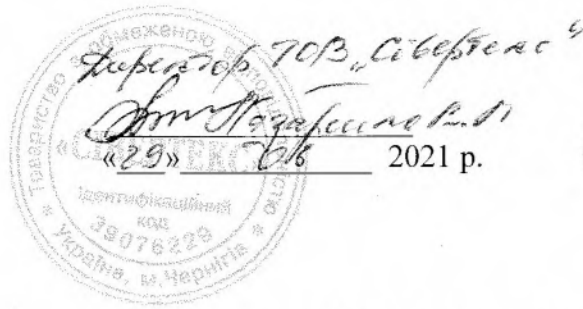 Директор ТОВ „Сівертекс"
«29» 06 2021 р.
Товариство з обмеженою відповідальністю
«СІВЕРТЕКС»
Ідентифікаційний
код
39076229
* Україна, м.Чернігів *